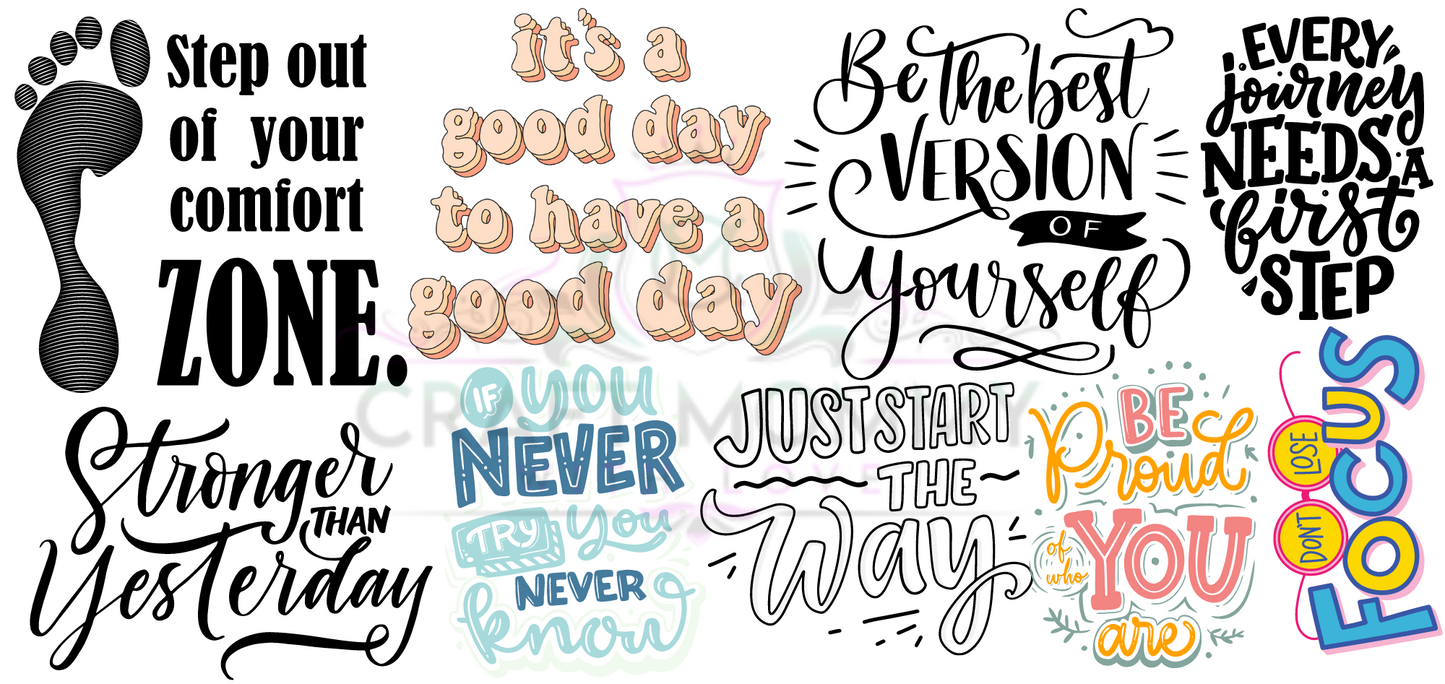 Step out
of your
comfort
ZONE.
it's a
good day
to have a
good day
Be the best
VERSION
OF
Yourself
EVERY
journey
NEEDS A
first
STEP
Stronger
THAN
Yesterday
IF you
NEVER
TRY you
NEVER
know
JUST START
THE
Way
BE
Proud
of who
YOU
are
DON'T LOSE
FOCUS
CRAFT MOMMY
LOVE